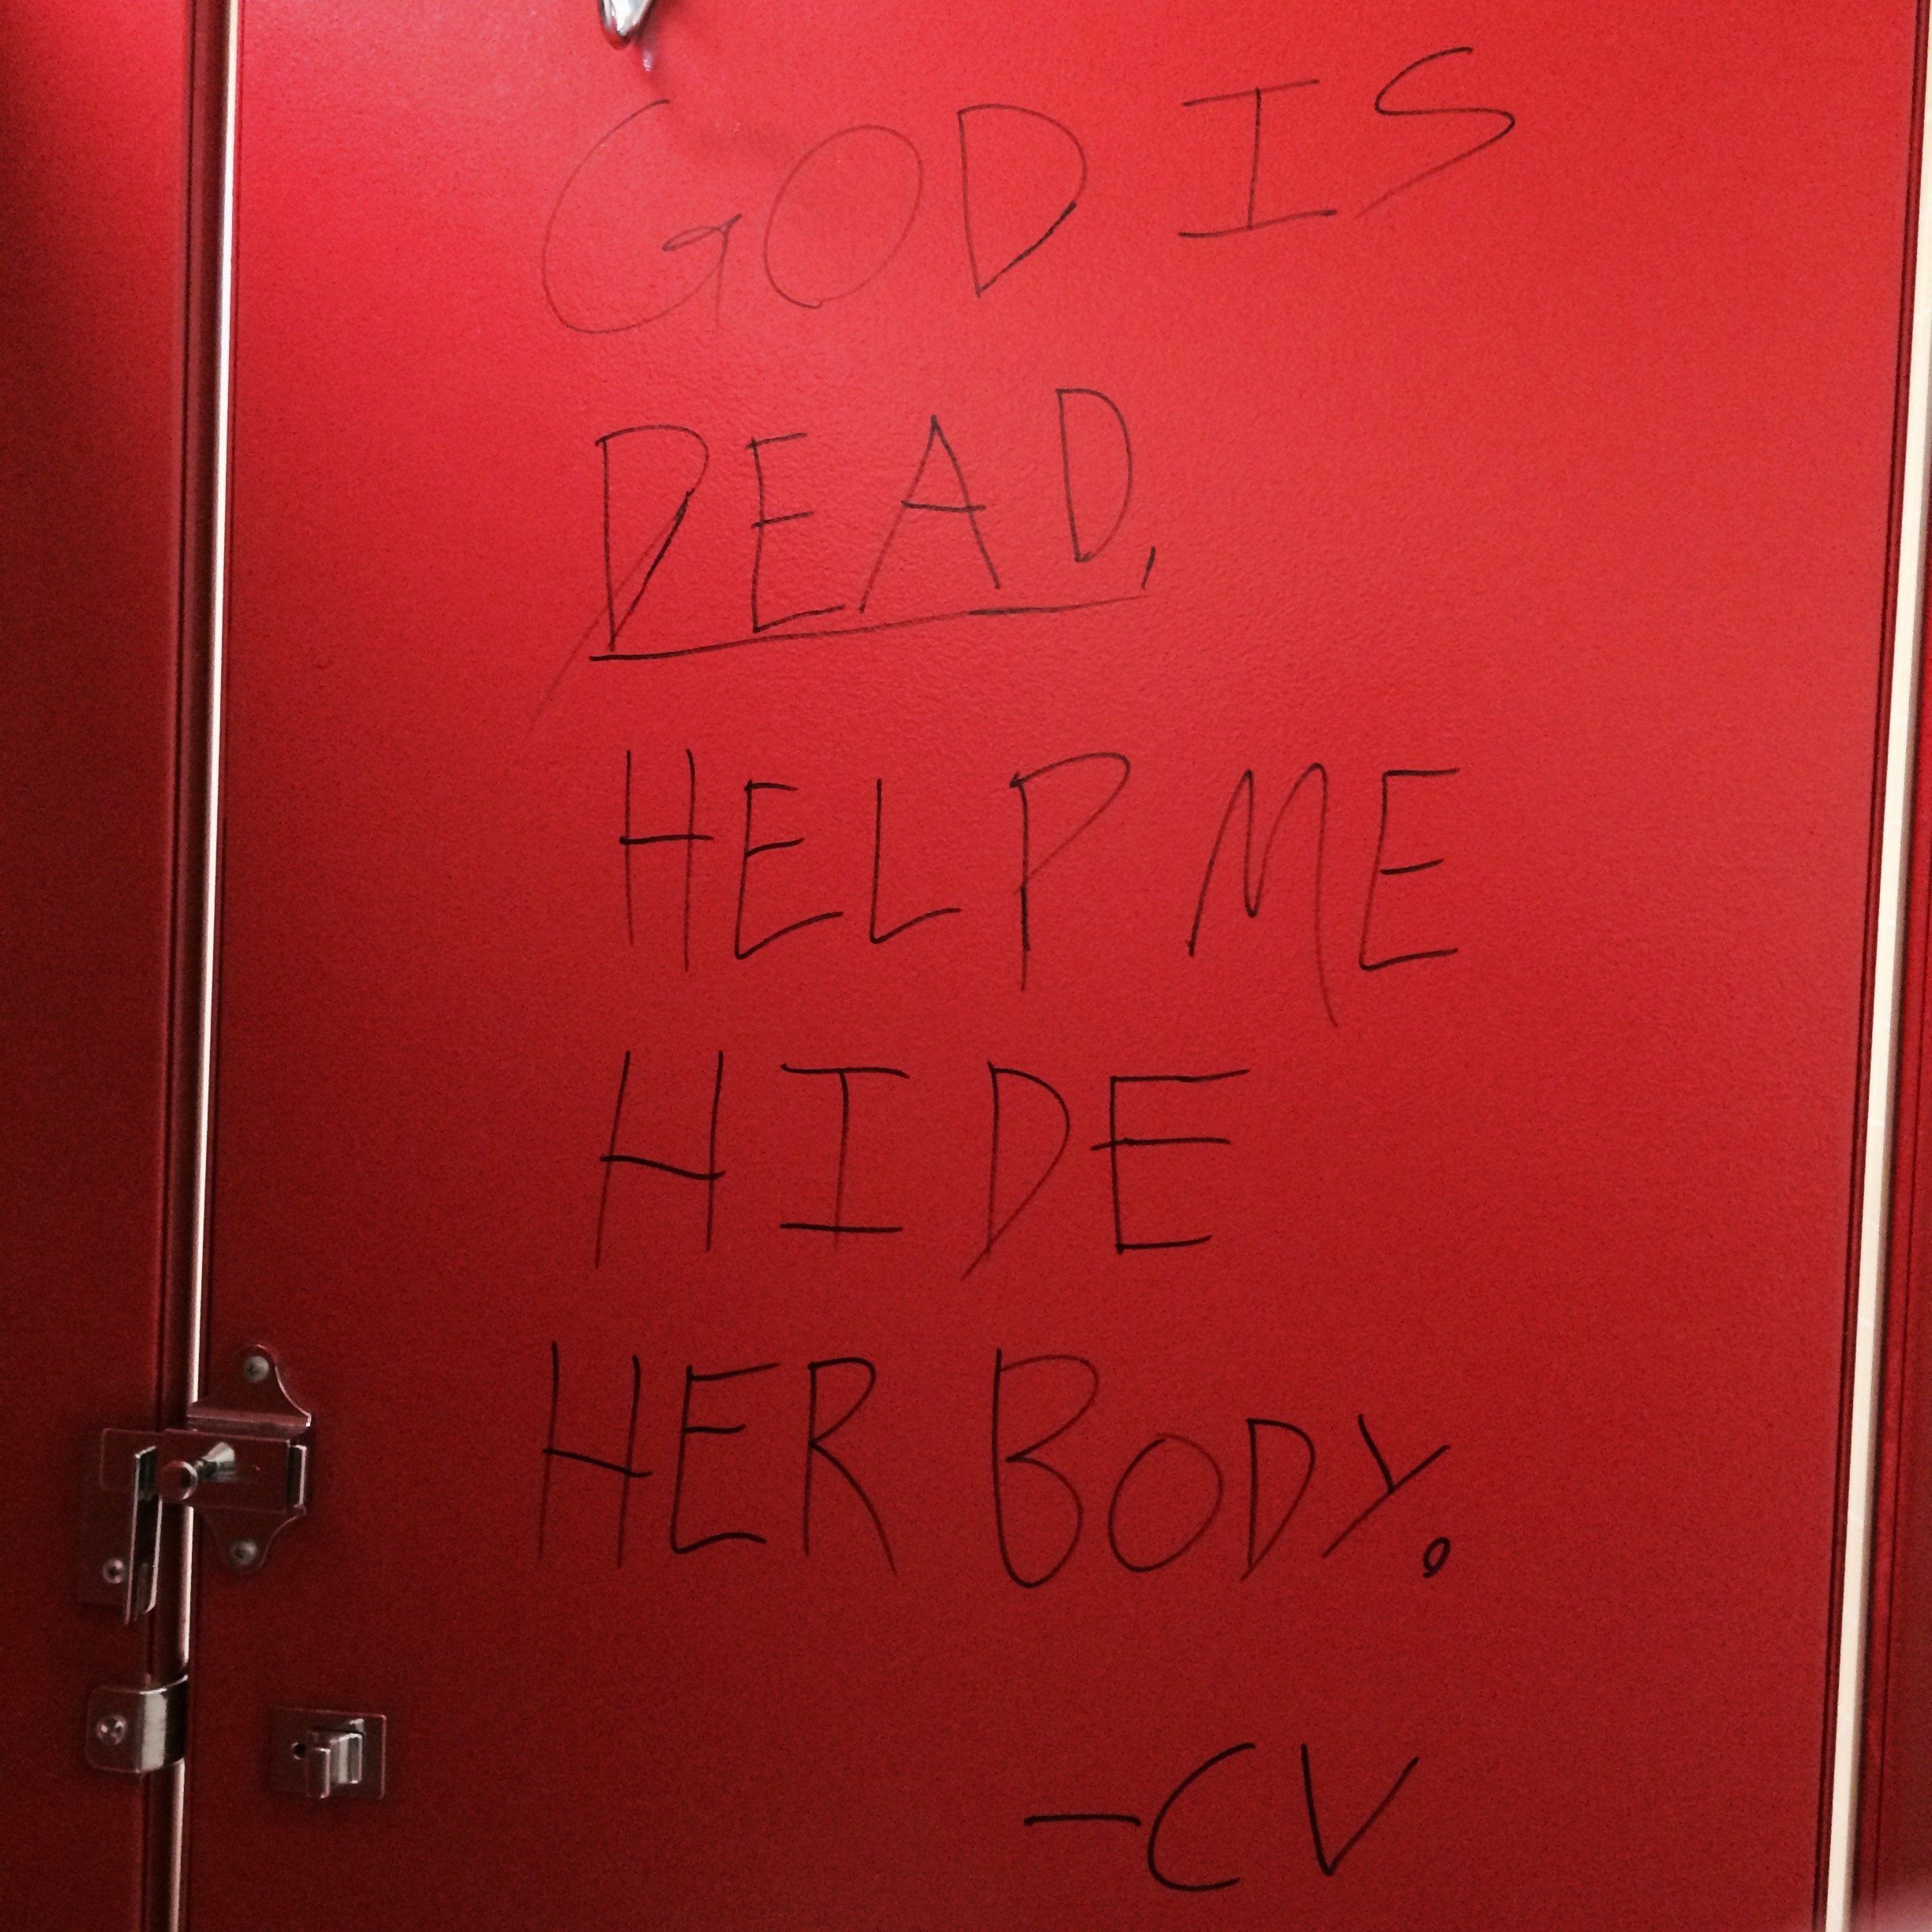 GOD IS
DEAD,
HELP ME
HIDE
HER BODY.
-CV